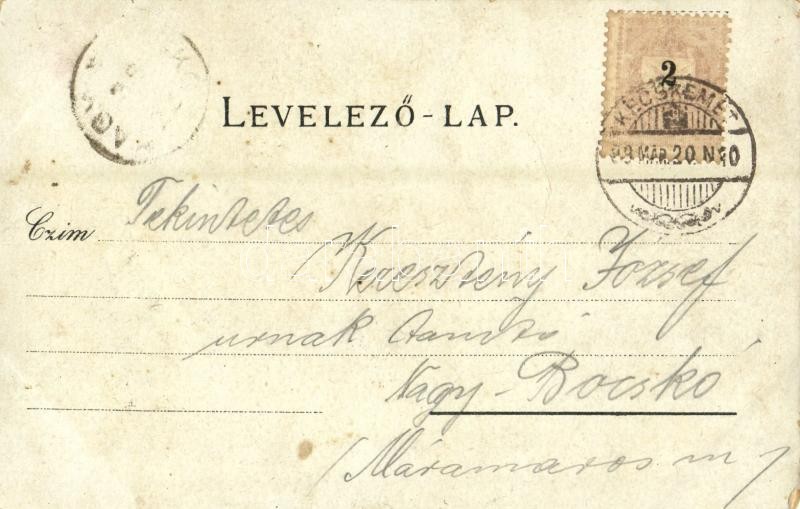 LEVELEZŐ-LAP.
2
KECSKEMÉT
MÁR. 20. N 10
Czim Tekintetes
Keresztény József
urnak tanító
Nagy-Bocskó
(Máramaros m)